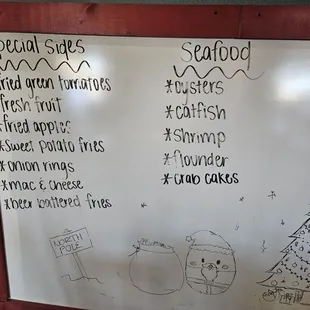 pecial Sides
fried green tomatoes
fresh fruit
*fried apples
*sweet potato fries
*onion rings
*mac & cheese
*beer battered fries
Seafood
*oysters
*catfish
*shrimp
*flounder
*crab cakes
NORTH
POLE